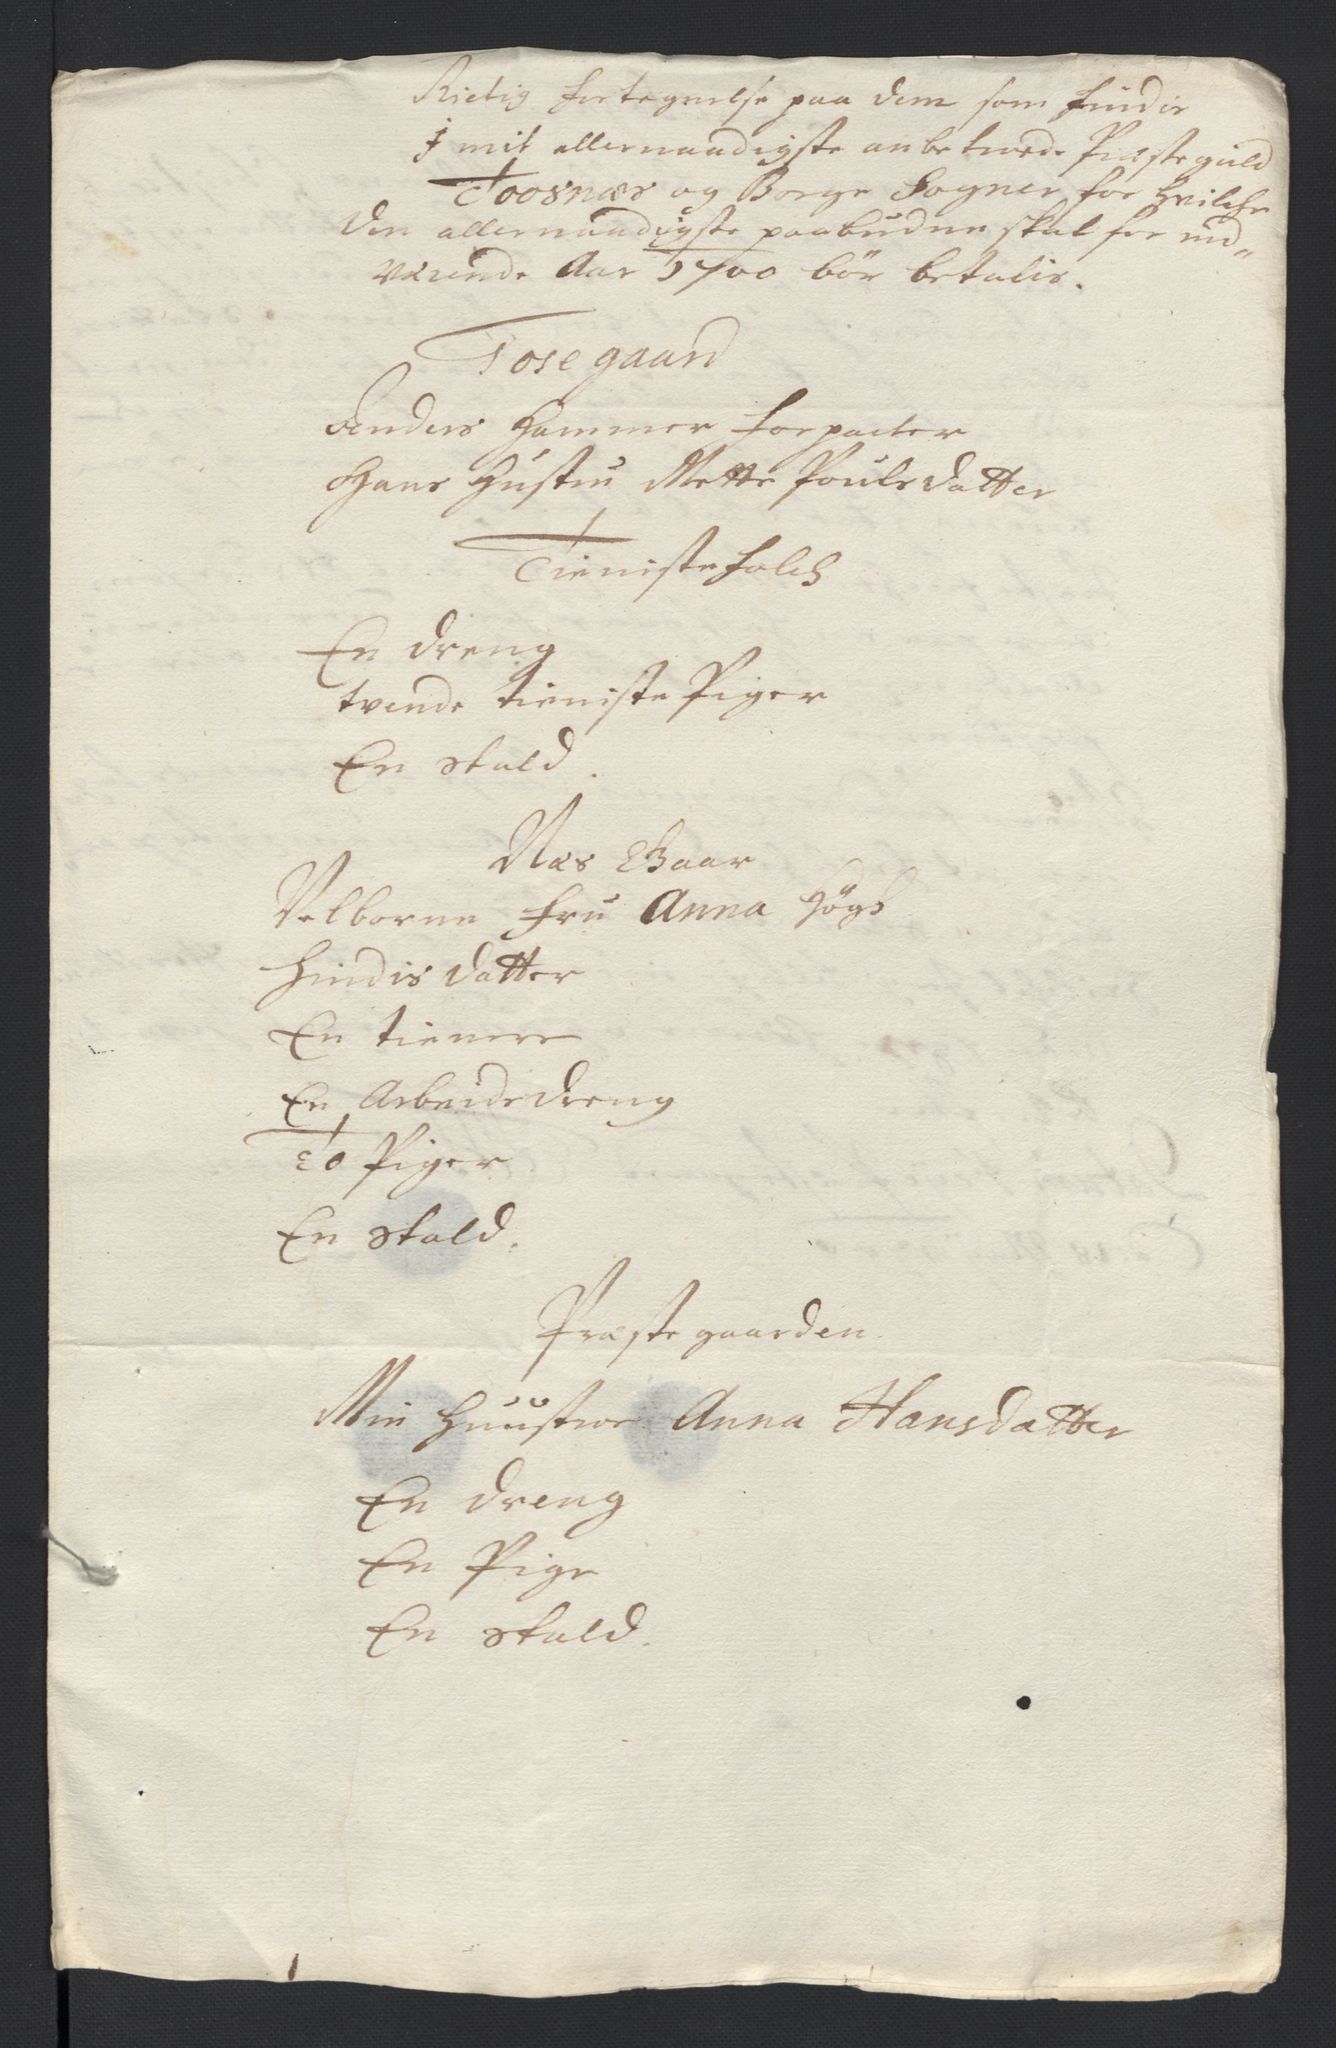 Rictig fortegnelse paa dem som findis
J mit allernaadigste anbetroede Præstegield
Toosnæs og Borge Sogner for hvilche
den allernaadigste paabudne skat for nu-
værende Aar 1700 bör betalis.
Tosegaard
Anders Hammer forpacter
Hans Hustru Mette Poulsdatter
Tienistefolch
En dreng
tvende tieniste Piger
En stald.
Næs Gaar
Velborne Fru Anna Högh
Hindis datter
En tienere
En Arbeidsdreng
To Piger
En stald.
Præstegaarden.
Min Huustroe Anna Hansdatter
En dreng
En Pige
En stald.